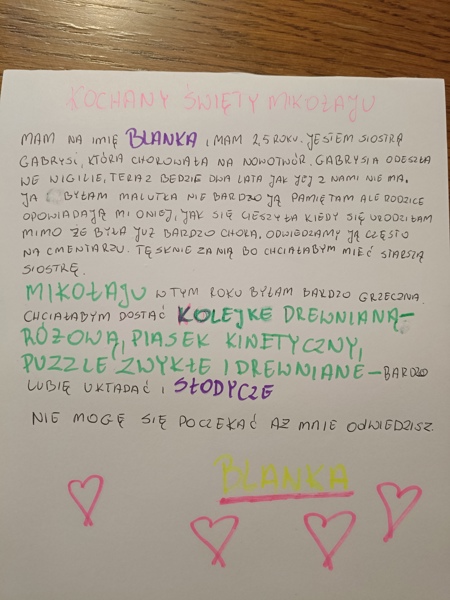 KOCHANY ŚWIĘTY MIKOŁAJU
MAM NA IMIĘ BLANKA I MAM 2,5 ROKU. JESTEM SIOSTRĄ
GABRYSI, KTÓRA CHOROWAŁA NA NOWOTWÓR. GABRYSIA ODESZŁA
WE WIGILIE, TERAZ BĘDZIE DWA LATA JAK JEJ Z NAMI NIE MA.
JA BYŁAM MALUTKA NIE BARDZO JĄ PAMIĘTAM ALE RODZICE
OPOWIADAJĄ MI O NIEJ, JAK SIĘ CIESZYŁA KIEDY SIĘ URODZIŁAM
MIMO ŻE BYŁA JUŻ BARDZO CHORA. ODWIEDZAMY JĄ CZĘSTO
NA CMENTARZU. TĘSKNIE ZA NIĄ BO CHCIAŁABYM MIEĆ STARSZĄ
SIOSTRĘ.
MIKOŁAJU W TYM ROKU BYŁAM BARDZO GRZECZNA.
CHCIAŁABYM DOSTAĆ KOLEJKE DREWNIANĄ-
RÓŻOWĄ, PIASEK KINETYCZNY,
PUZZLE ZWYKŁE I DREWNIANE - BARDZO
LUBIĘ UKŁADAĆ I SŁODYCZE
NIE MOGĘ SIĘ POCZEKAĆ AŻ MNIE ODWIEDZISZ.
BLANKA